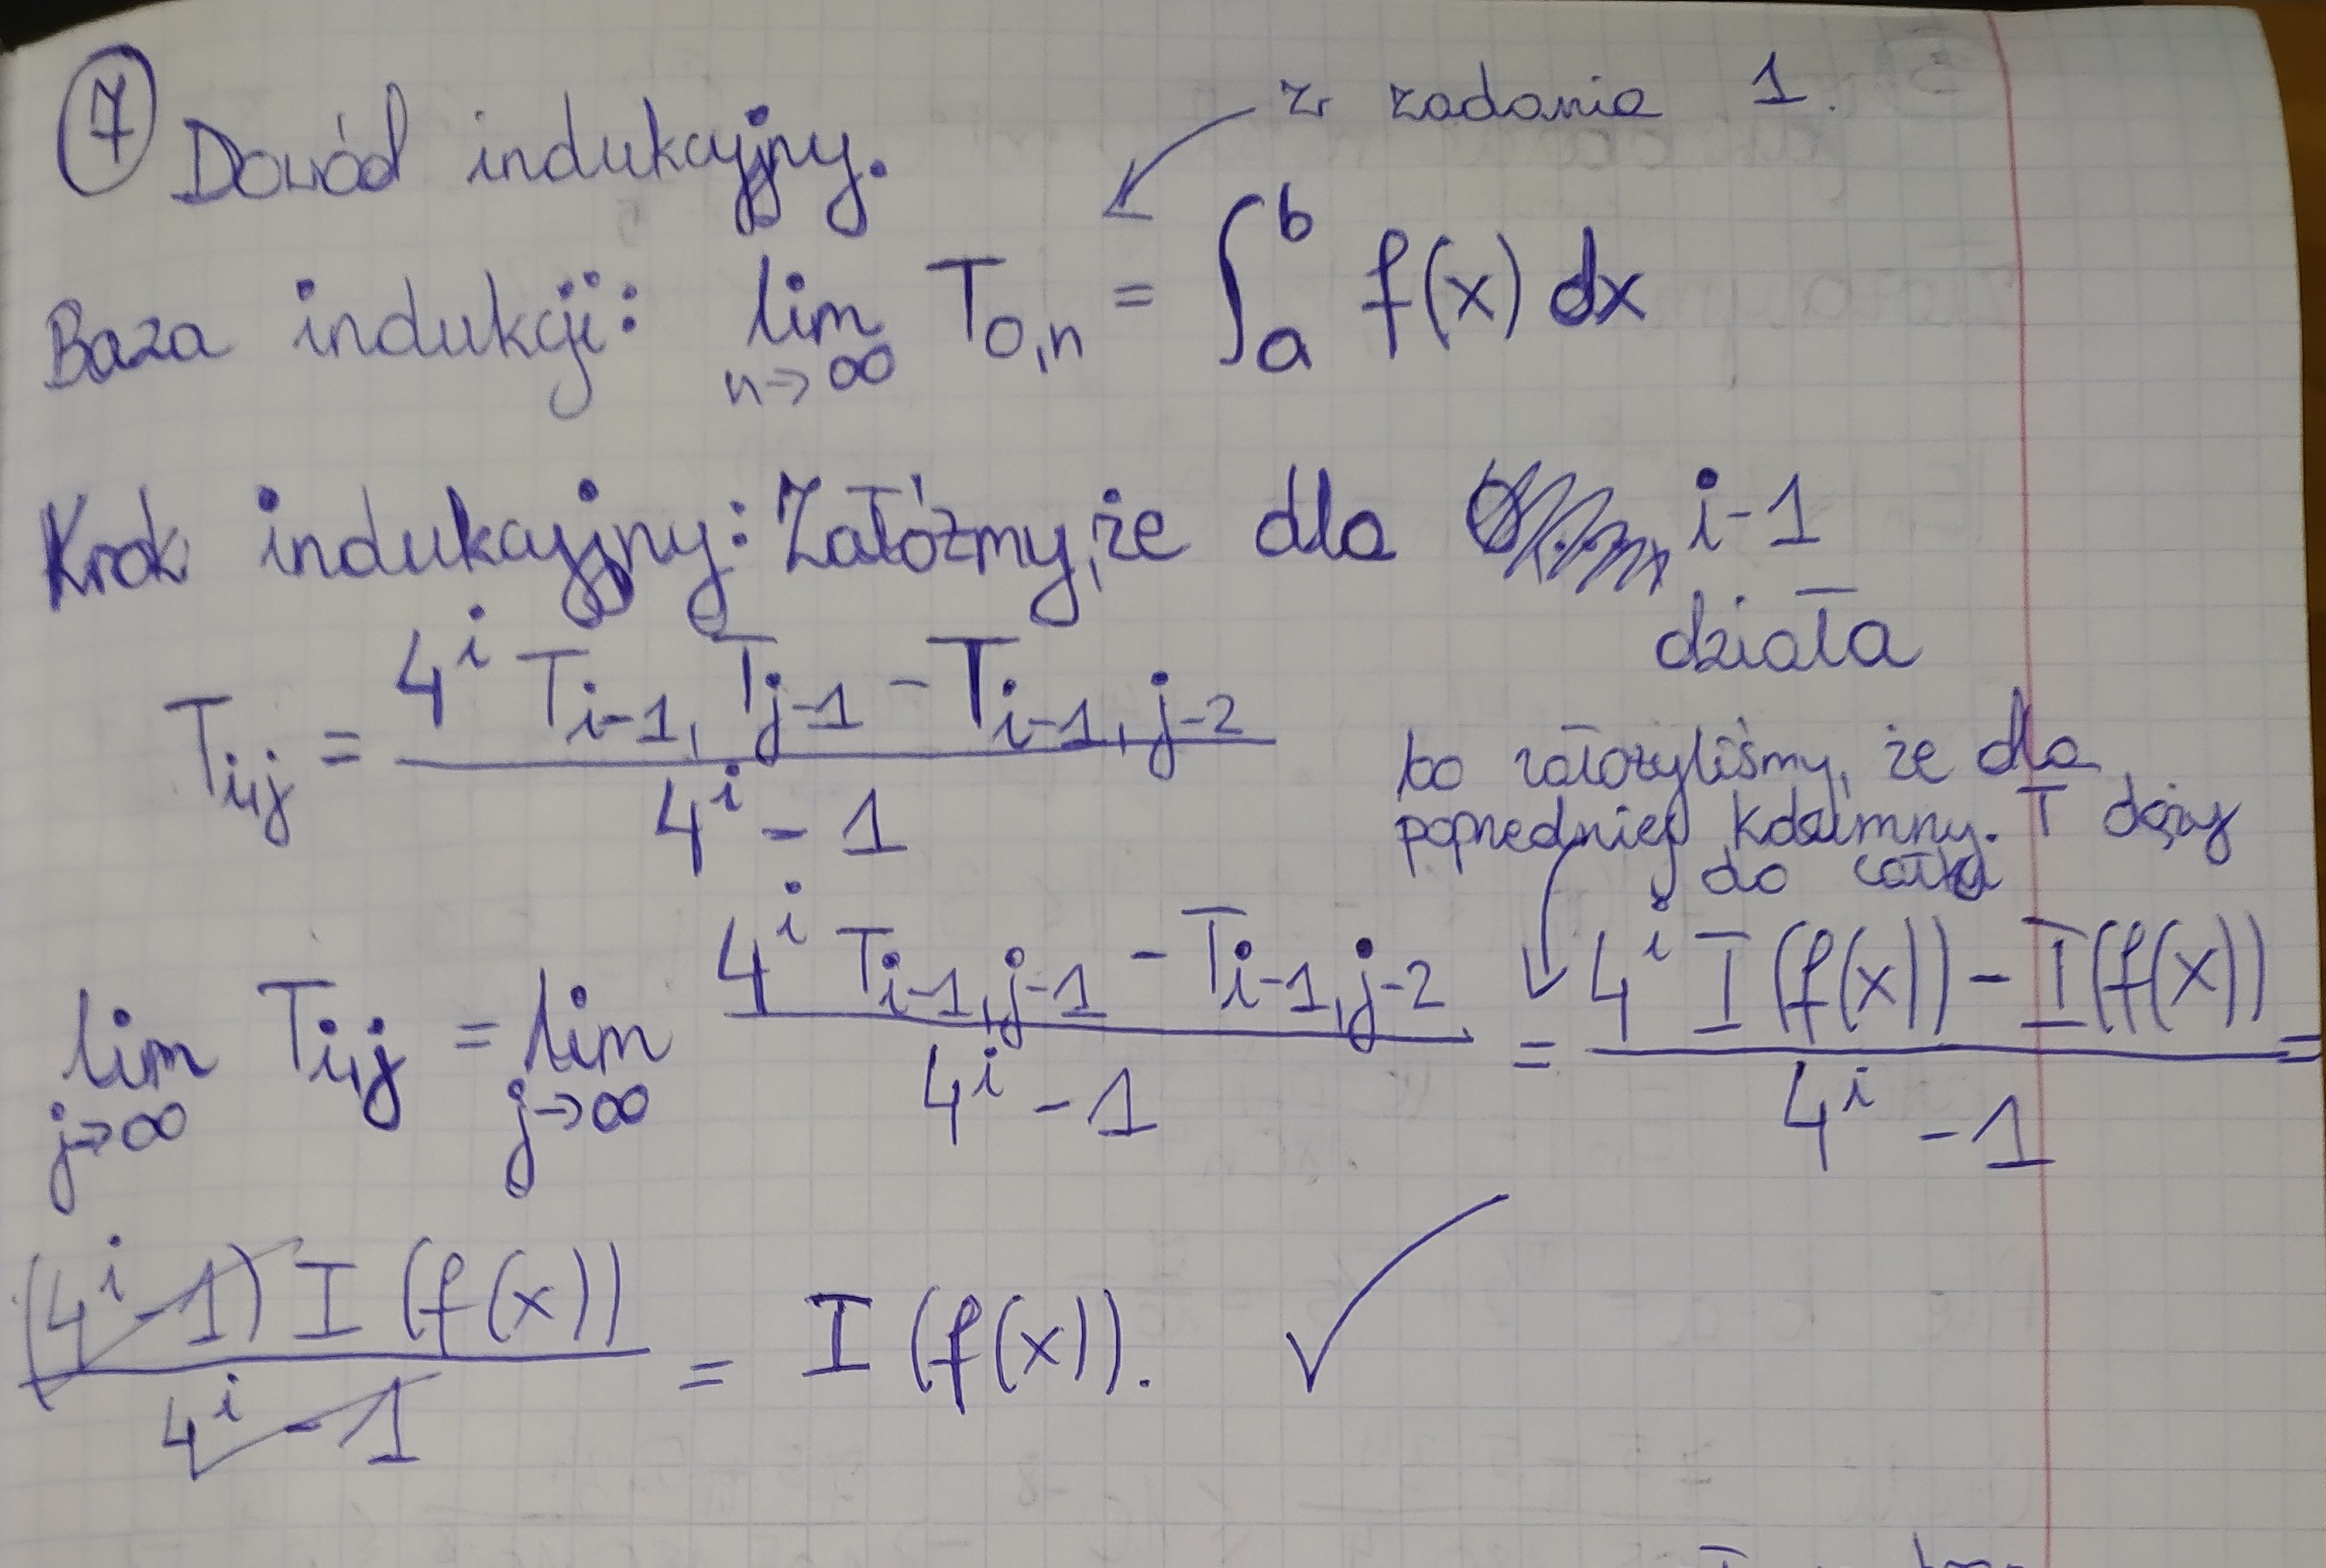 7 Dowód indukcyjny.
z zadania 1.
Baza indukcji: lim n→∞ T0,n = ∫_a^b f(x) dx
Krok indukcyjny: Załóżmy, że dla i-1
działa
Ti,j = (4^i Ti-1, Tj-1 - Ti-1, j-2) / (4^i - 1)
bo założyliśmy, że dla
poprzedniej kolumny. T dąży
do całki
lim j→∞ Ti,j = lim j→∞ (4^i Ti-1,j-1 - Ti-1,j-2) / (4^i - 1) = (4^i I(f(x)) - I(f(x))) / (4^i - 1) =
((4^i - 1) I(f(x))) / (4^i - 1) = I(f(x)). ✓